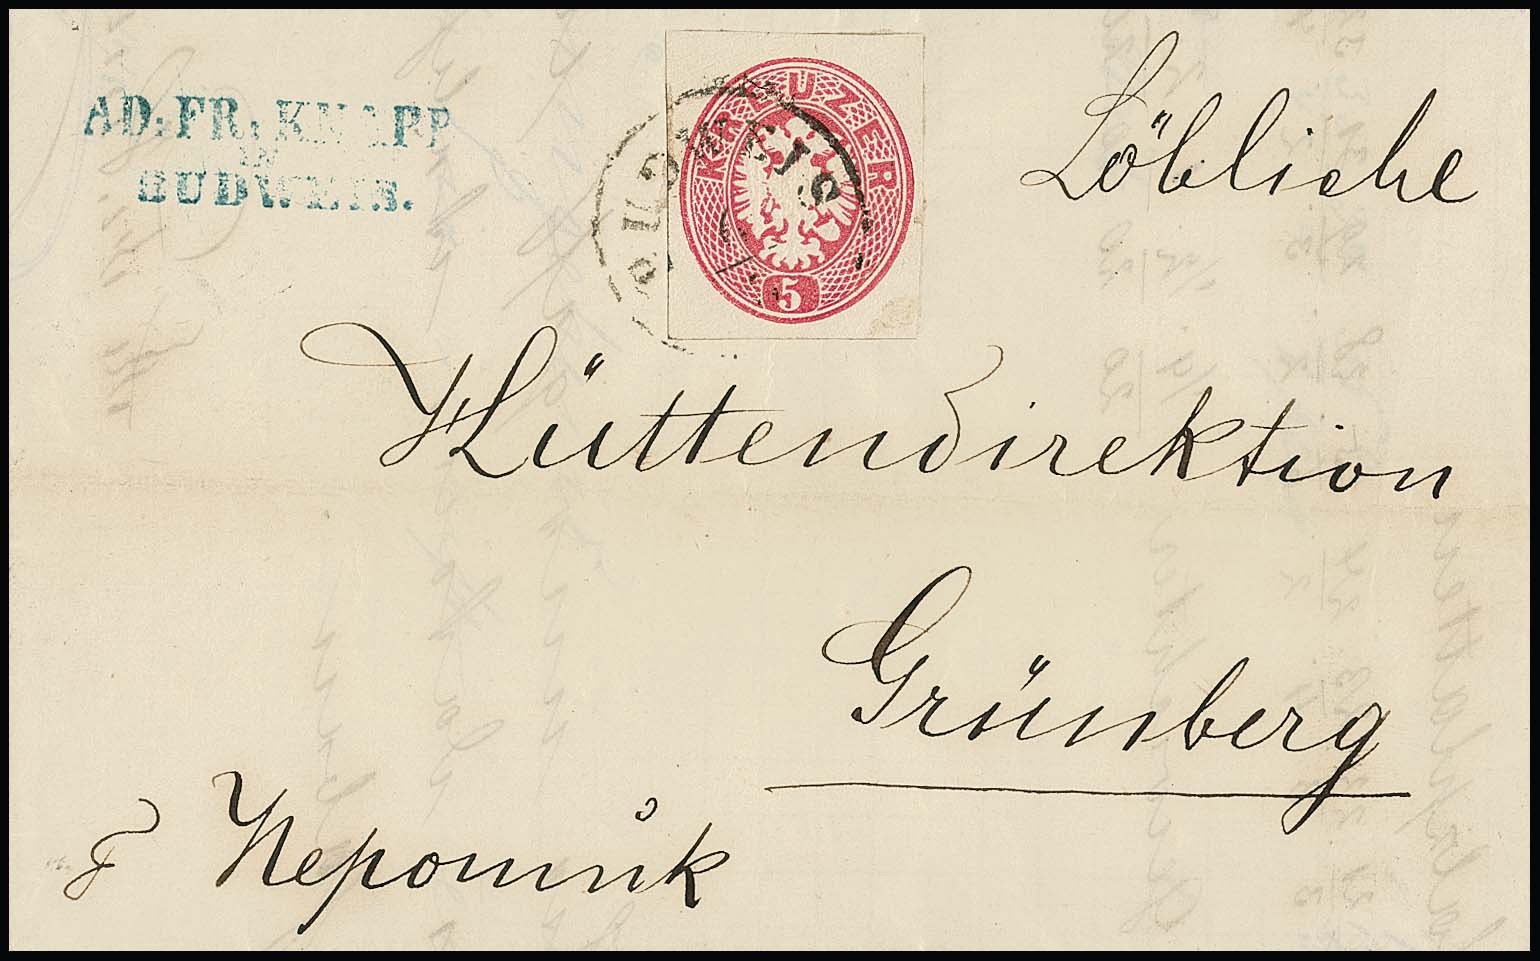 AD. FR. KNAPP
IN
BUDWEIS.
KREUZER
5
BUDWEIS
Löbliche
Hüttendirektion
Grünberg
Nepomuk